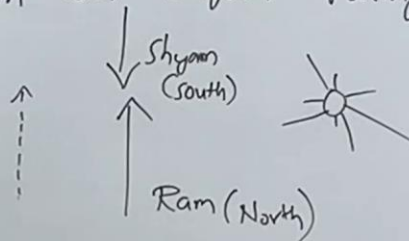 Shyam
(South)
Ram (North)